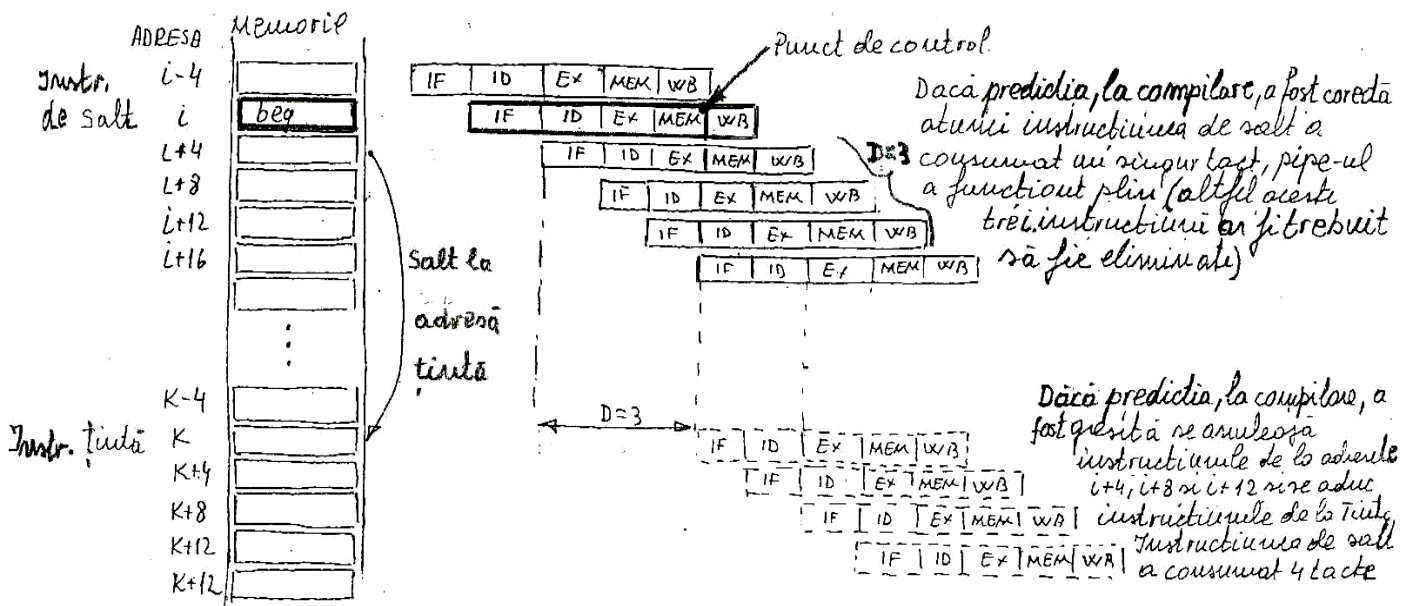 ADRESA
Memorie
Instr.
de salt
i-4
i
beq
i+4
i+8
i+12
i+16
Salt la
adresă
țintă
K-4
Instr. țintă
K
K+4
K+8
K+12
K+12
Punct de control
IF ID EX MEM WB
IF ID EX MEM WB
IF ID EX MEM WB
IF ID EX MEM WB
IF ID EX MEM WB
IF ID EX MEM WB
D=3
Dacă predicția, la compilare, a fost corectă
atunci instrucțiunea de salt a
consumat un singur tact, pipe-ul
a funcționat plin (altfel aceste
trei instrucțiuni ar fi trebuit
să fie eliminate)
D=3
IF ID EX MEM WB
IF ID EX MEM WB
IF ID EX MEM WB
IF ID EX MEM WB
Dacă predictia, la compilare, a
fost gresită se anulează
instructiunile de la adresele
i+4, i+8 si i+12 si se aduc
instructiunile de la Tinta
Instructiunea de salt
a consumat 4 tacte